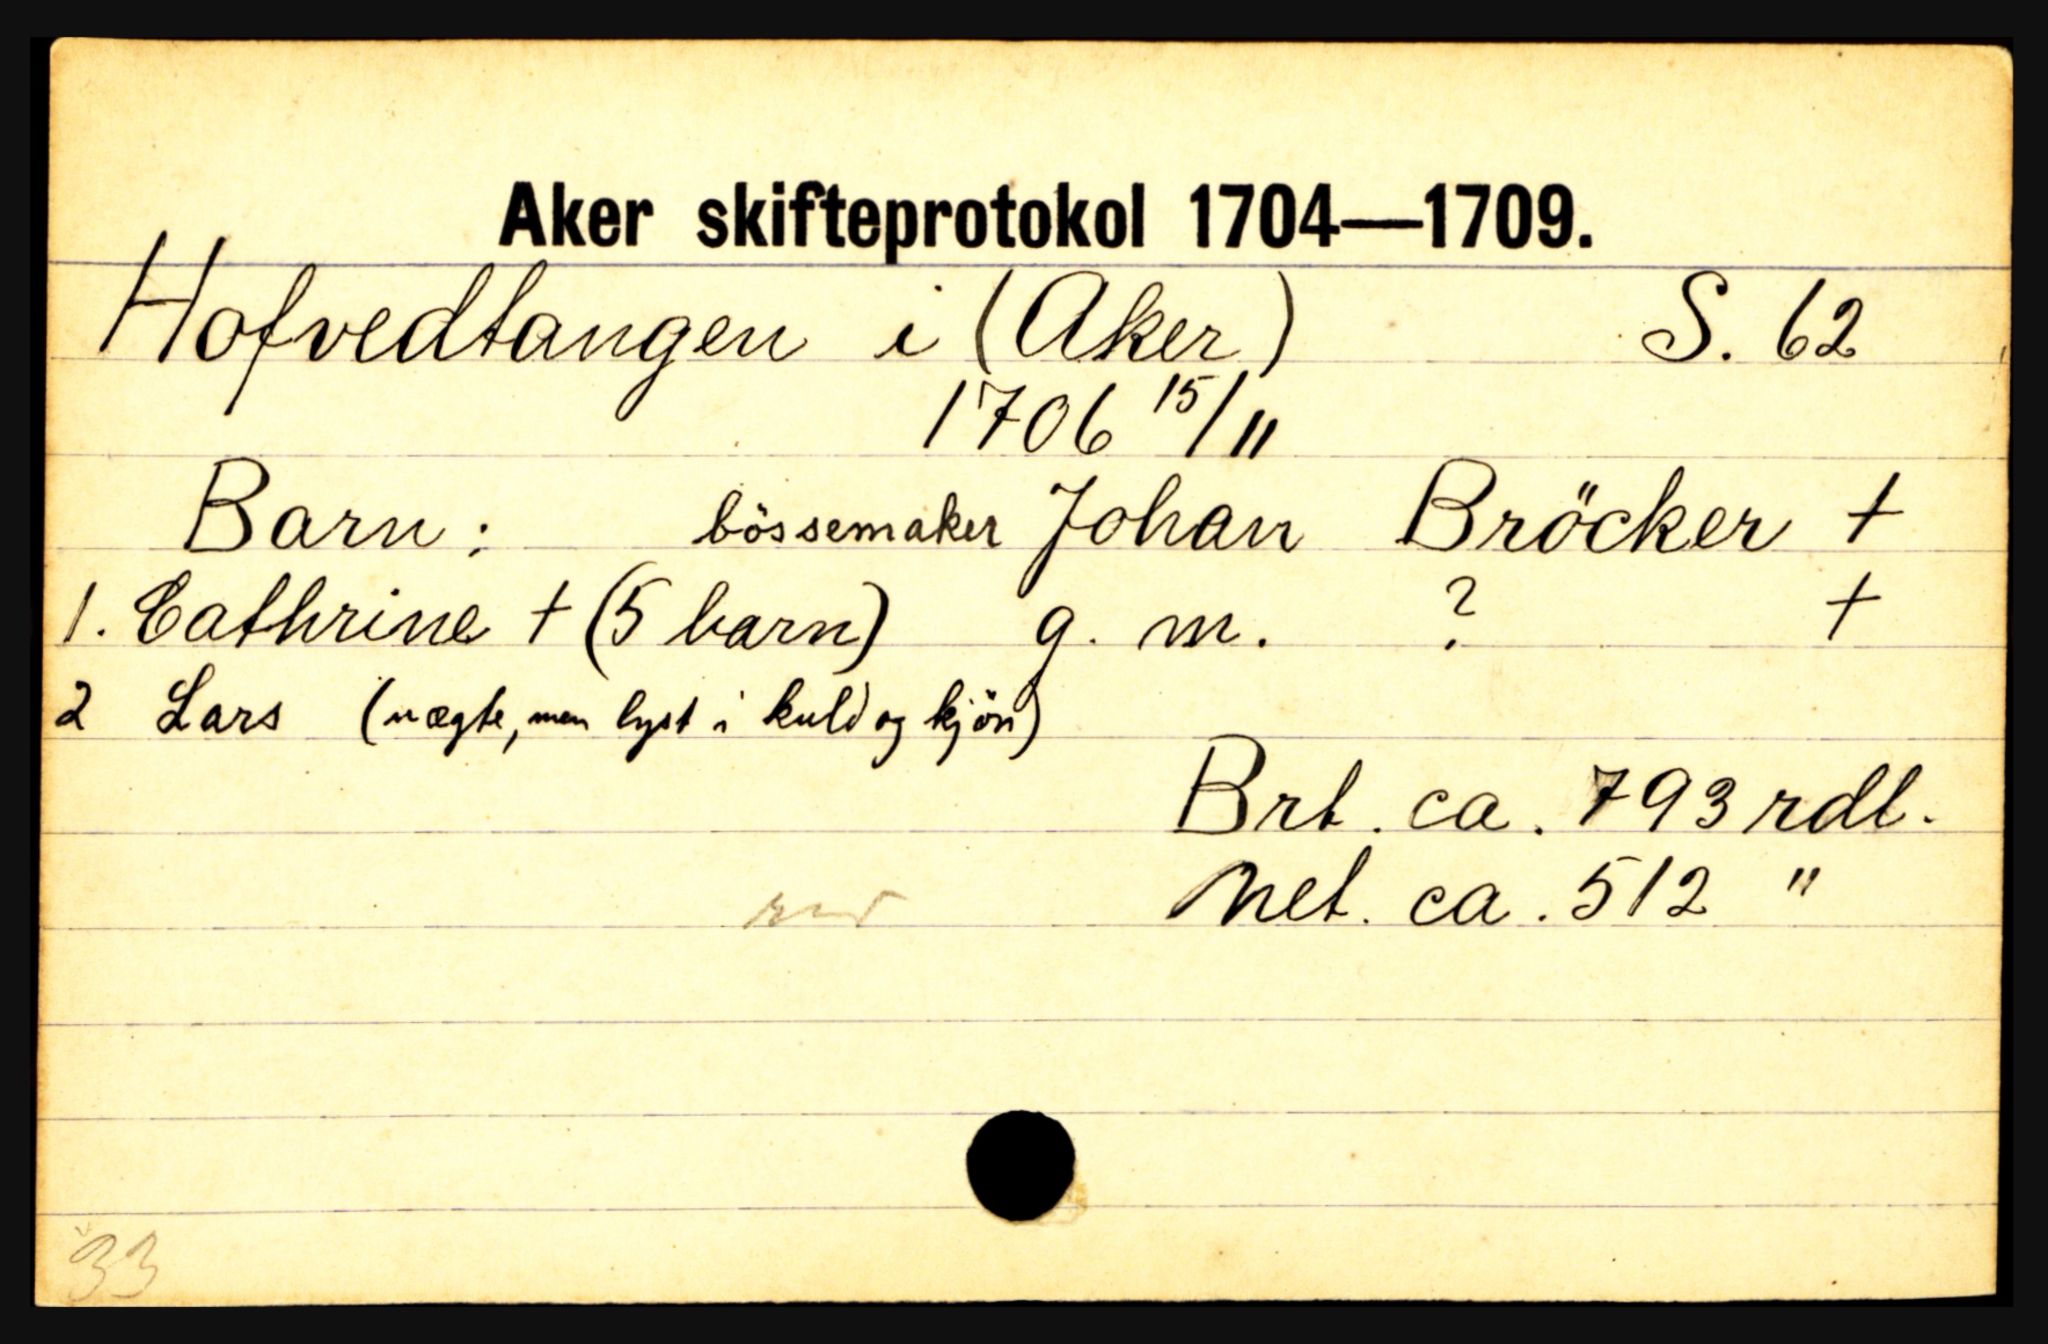 Aker skifteprotokol 1704—1709.
Hofvedtangen i (Aker) S. 62
1706 15/11
Barn: bössemaker Johan Bröcker †
1. Cathrine † (5 barn) g. m. ? †
2 Lars (uægte, men lyst i kuld og kjön)
Brt. ca. 793 rdl.
Net. ca. 512 "
33